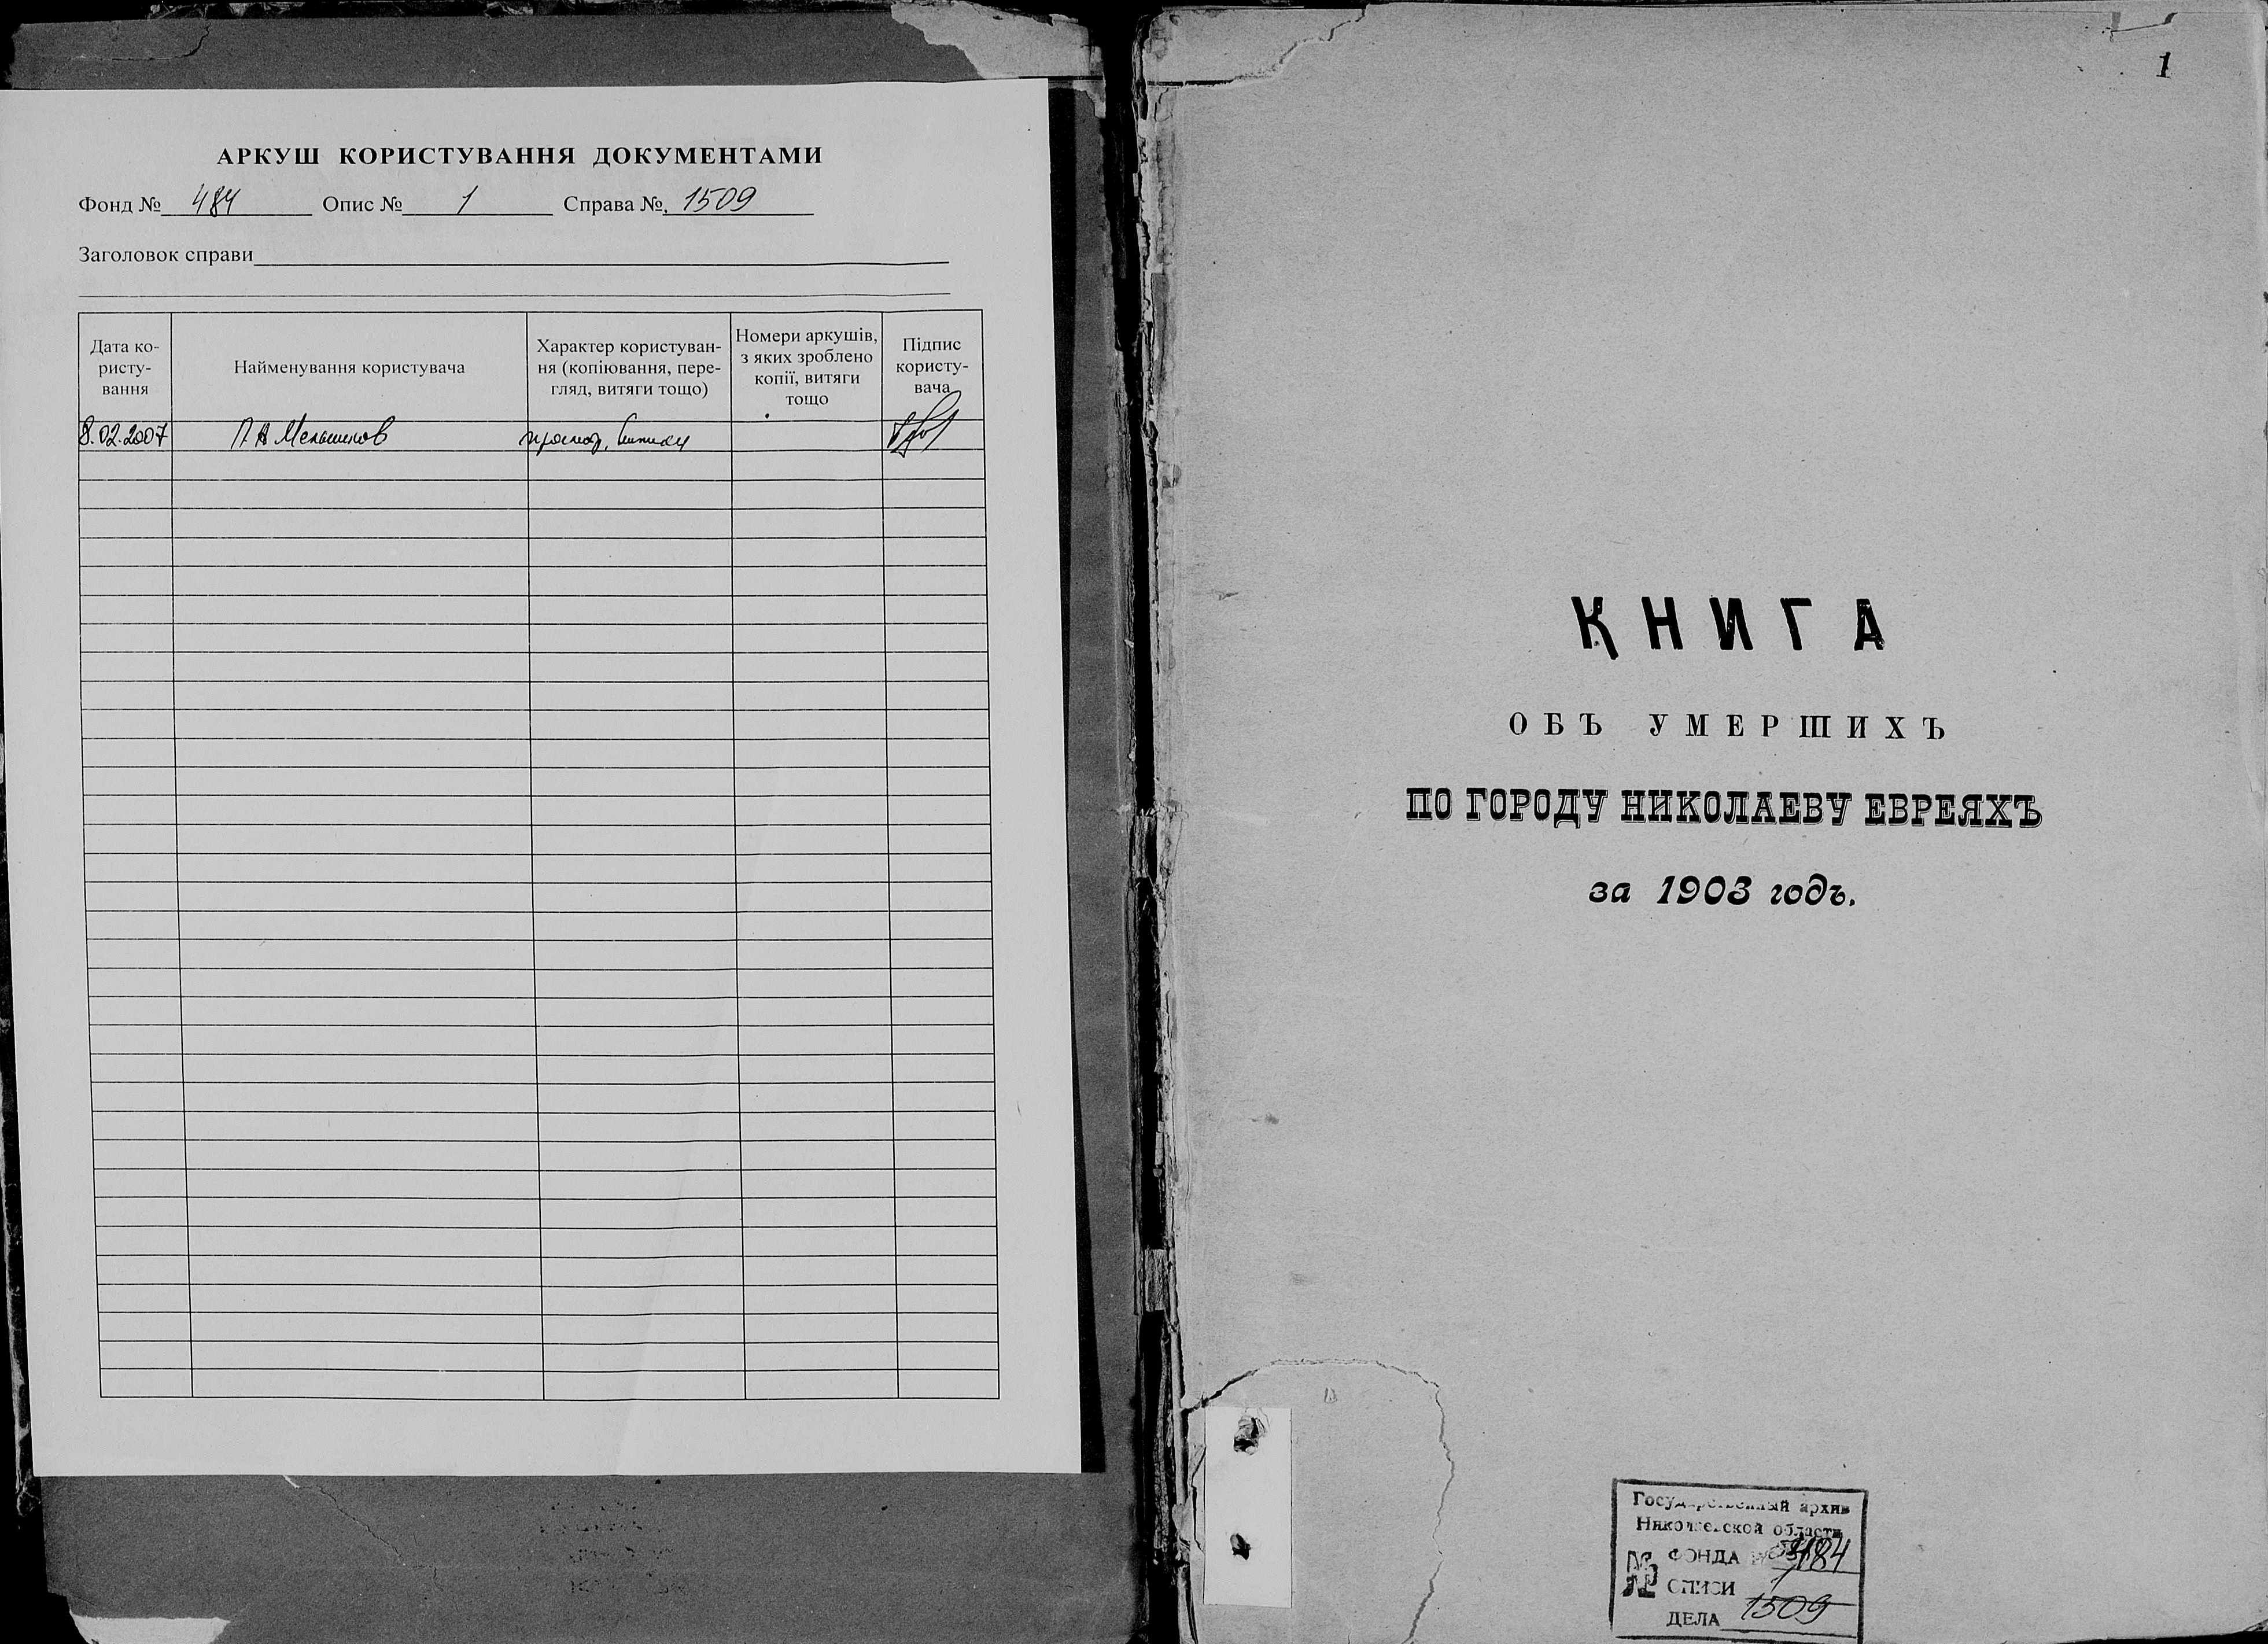 АРКУШ КОРИСТУВАННЯ ДОКУМЕНТАМИ
Фонд № 484 Опис № 1 Справа №. 1509
Заголовок справи
Дата ко-
ристу-
вання
Найменування користувача
Характер користуван-
ня (копіювання, пере-
гляд, витяги тощо)
Номери аркушів,
з яких зроблено
копії, витяги
тощо
Підпис
користу-
вача
8.02.2007 П А Мельников
1
КНИГА
ОБЪ УМЕРШИХЪ
ПО ГОРОДУ НИКОЛАЕВУ ЕВРЕЯХЪ
за 1903 годъ.
Государственный архив
Николаевской области
№ ФОНДА 484
ОПИСИ 1
ДЕЛА 1509